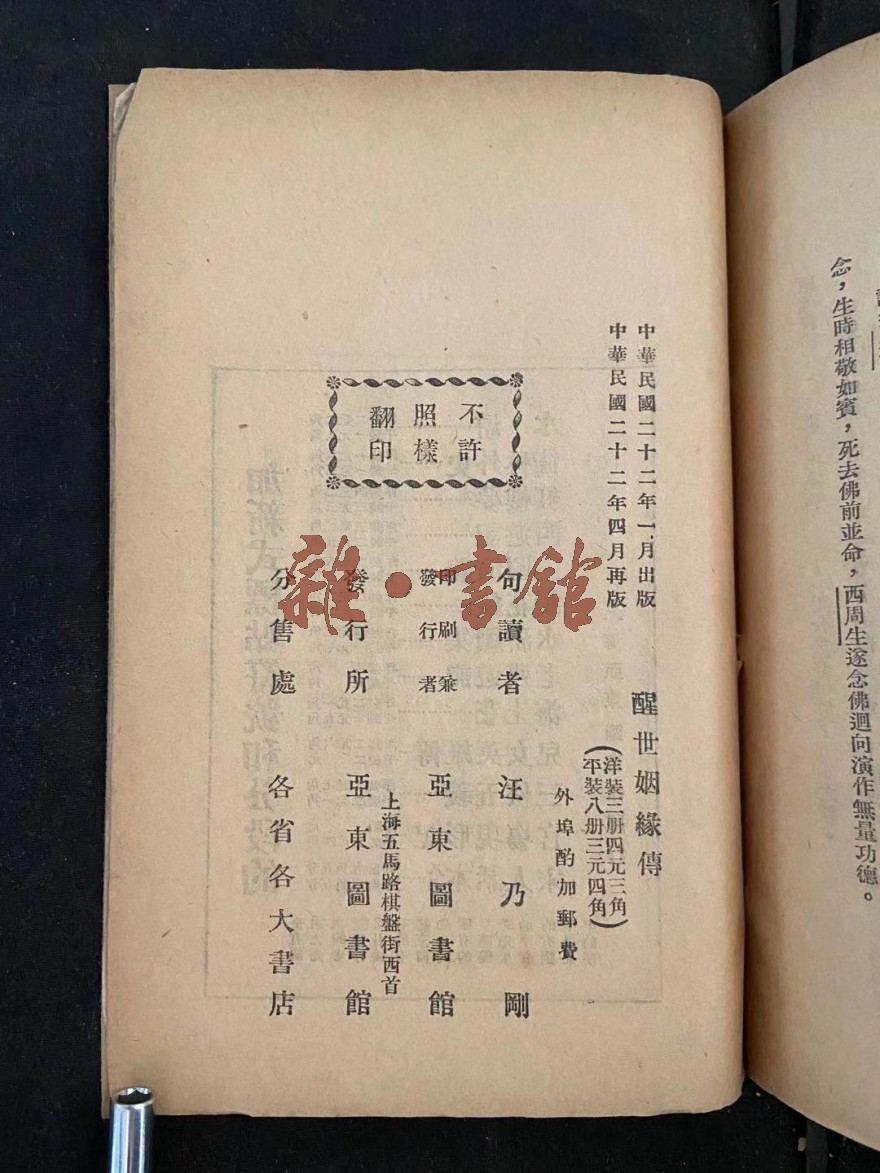 念，生時相敬如賓，死去佛前並命，西周生遂念佛迴向演作無量功德。
中華民國二十二年一月出版
中華民國二十二年四月再版
醒世姻緣傳
（洋裝三册四元三角）
（平裝八册三元四角）
外埠酌加郵費
不許
照樣
翻印
句讀者 汪乃剛
印刷兼
發行者 亞東圖書館
上海五馬路棋盤街西首
發行所 亞東圖書館
分售處 各省各大書店
雜·書館